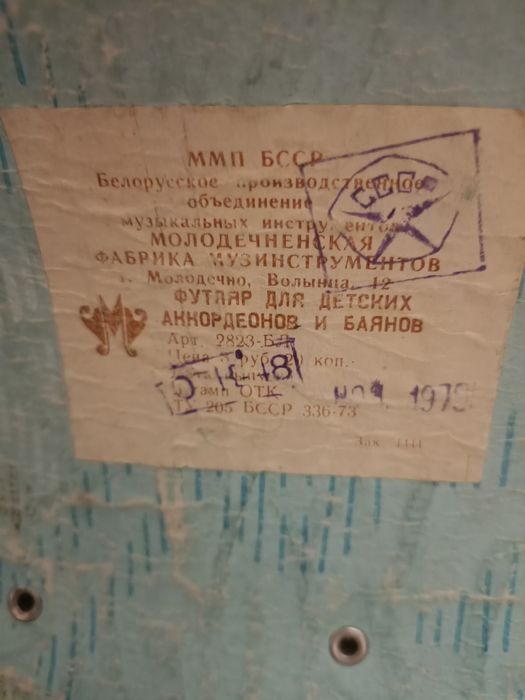 ММП БССР
Белорусское производственное
объединение
музыкальных инструментов
МОЛОДЕЧНЕНСКАЯ
ФАБРИКА МУЗИНСТРУМЕНТОВ
г. Молодечно, Волынца, 12
ФУТЛЯР ДЛЯ ДЕТСКИХ
АККОРДЕОНОВ И БАЯНОВ
Арт. 2823-БД
Цена 5 руб. 20 коп.
Штамп ОТК
ТУ 205 БССР 336-73
НОЯ 1979
Зак. 1111
СССР
М